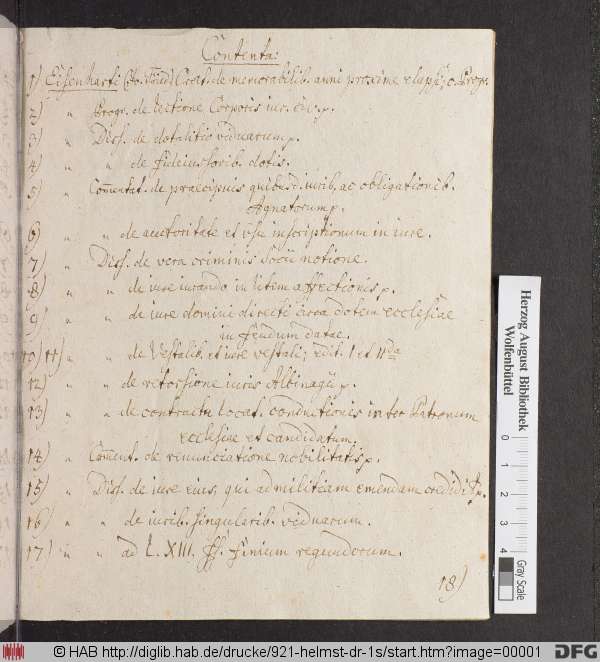 Contenta:
1) Eisenharti Orat. de memorabilib. anni proxime elapsi; c. Progr.
2) " Progr. de lectione Corporis iur. civ. p.
3) " Diss. de dotalitio viduarum p.
4) " " de fideiussorib. dotis.
5) " Com̅entat. de praecipuis quibusd. iurib. ac obligationib.
Agnatorum p.
6) " " de auctoritate et usu inscriptionum in iure.
7) " Diss. de vera criminis socii notione.
8) " " de iure iurando in litem affectionis p.
9) " " de iure domini directi circa dotem ecclesiae
in feudum datae.
10) 11) " " de Vestalib. et iure vestali; edit. I et IIda
12) " " de retorsione iuris Albinagii p.
13) " " de contractu locat. conductionis inter Patronum
ecclesiae et candidatum.
14) " Com̅ent. de renunciatione nobilitatis p.
15) " Diss. de iure eius, qui ad militiam emendam credidit p.
16) " " de iurib. singularib. viduarum.
17) " " ad L. XIII. ff. finium regundorum.
18)
Herzog August Bibliothek
Wolfenbüttel
0 1 2 3 4
Gray Scale
© HAB http://diglib.hab.de/drucke/921-helmst-dr-1s/start.htm?image=00001
DFG